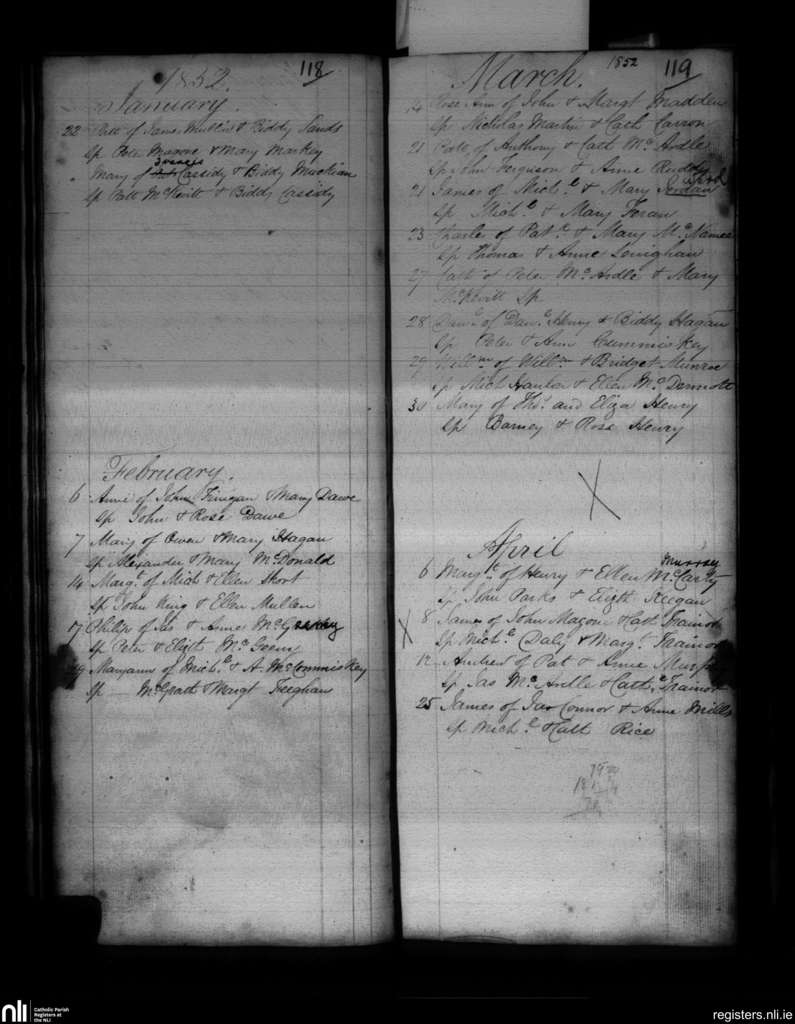 118
1852.
January.
22 Patt of James Mullin & Biddy Sands
Sp Pete Magone & Mary Markey
Mary of Cassidy & Biddy
Sp Patt McKevitt & Biddy Cassidy
February.
6 Anne of John Finigan & Mary Dawe
Sp John & Rose Dawe
7 Mary of Owen & Mary Hagan
Sp Alexander & Mary McDonald
14 Margt of Mich & Ellen Short
Sp John King & Ellen Mullen
17 Philip of Jas & Anne
Sp Peter & Elizth
29 Maryann of Michl & A. McCommiskey
Sp McGrath & Margt Feeghan
1852
119
March.
14 Rose Ann of John & Margt Madden
Sp Nicholas Martin & Cath Carron
21 Patt of Anthony & Cath McArdle
Sp John Ferguson & Anne Ruddy
21 James of Michl & Mary Jordan
Sp Michl & Mary Foran
23 Charles of Patk & Mary McNamee
Sp Thomas & Anne
27 Cath of Peter McArdle & Mary
McKevitt Sp
28 Danl of Danl Henry & Biddy Hagan
Sp Peter & Ann Cummiskey
29 Willm of Willm & Bridget Munroe
Sp Mich Hanlon & Ellen McDermott
30 Mary of Thos and Eliza Henry
Sp Barney & Rose Henry
X
April
Murray
6 Margt of Henry & Ellen McCarty
Sp John Parks & Elizth Keegan
X 8 James of John Magone & Cath Trainor
Sp Michl Daly & Margt Trainor
12 Andrew of Pat & Anne Murphy
Sp Jas McArdle & Cathe Trainor
25 James of Jas Connor & Anne Mills
Sp Michl & Catt Rice
nli
Catholic Parish
Registers at
the NLI
registers.nli.ie